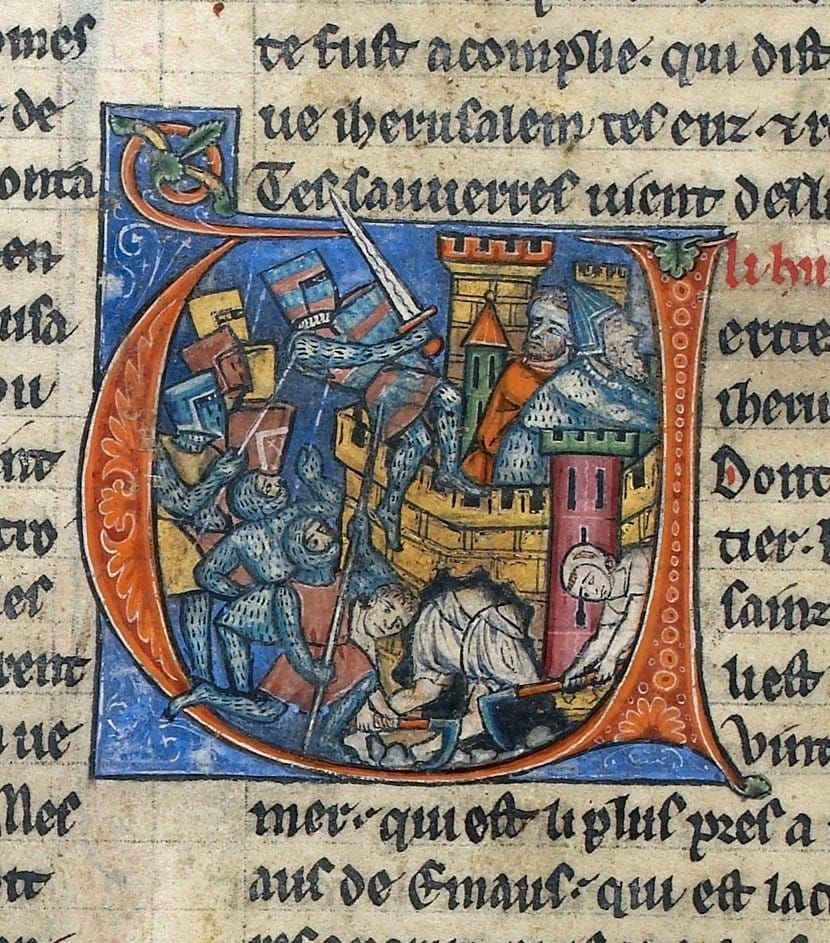 omes
de
onta
en
uisa
ou
es
rent
ue
Mes
te fust acomplie. qui dist
ue iherusalem tes euz. ⁊ r
Tes sauuerres uient desl
U
li. hu
erite
iheru
Dont
tier.
sainz
li est
Vint
mer. qui est li plus pres a
aus de Emaus. qui est